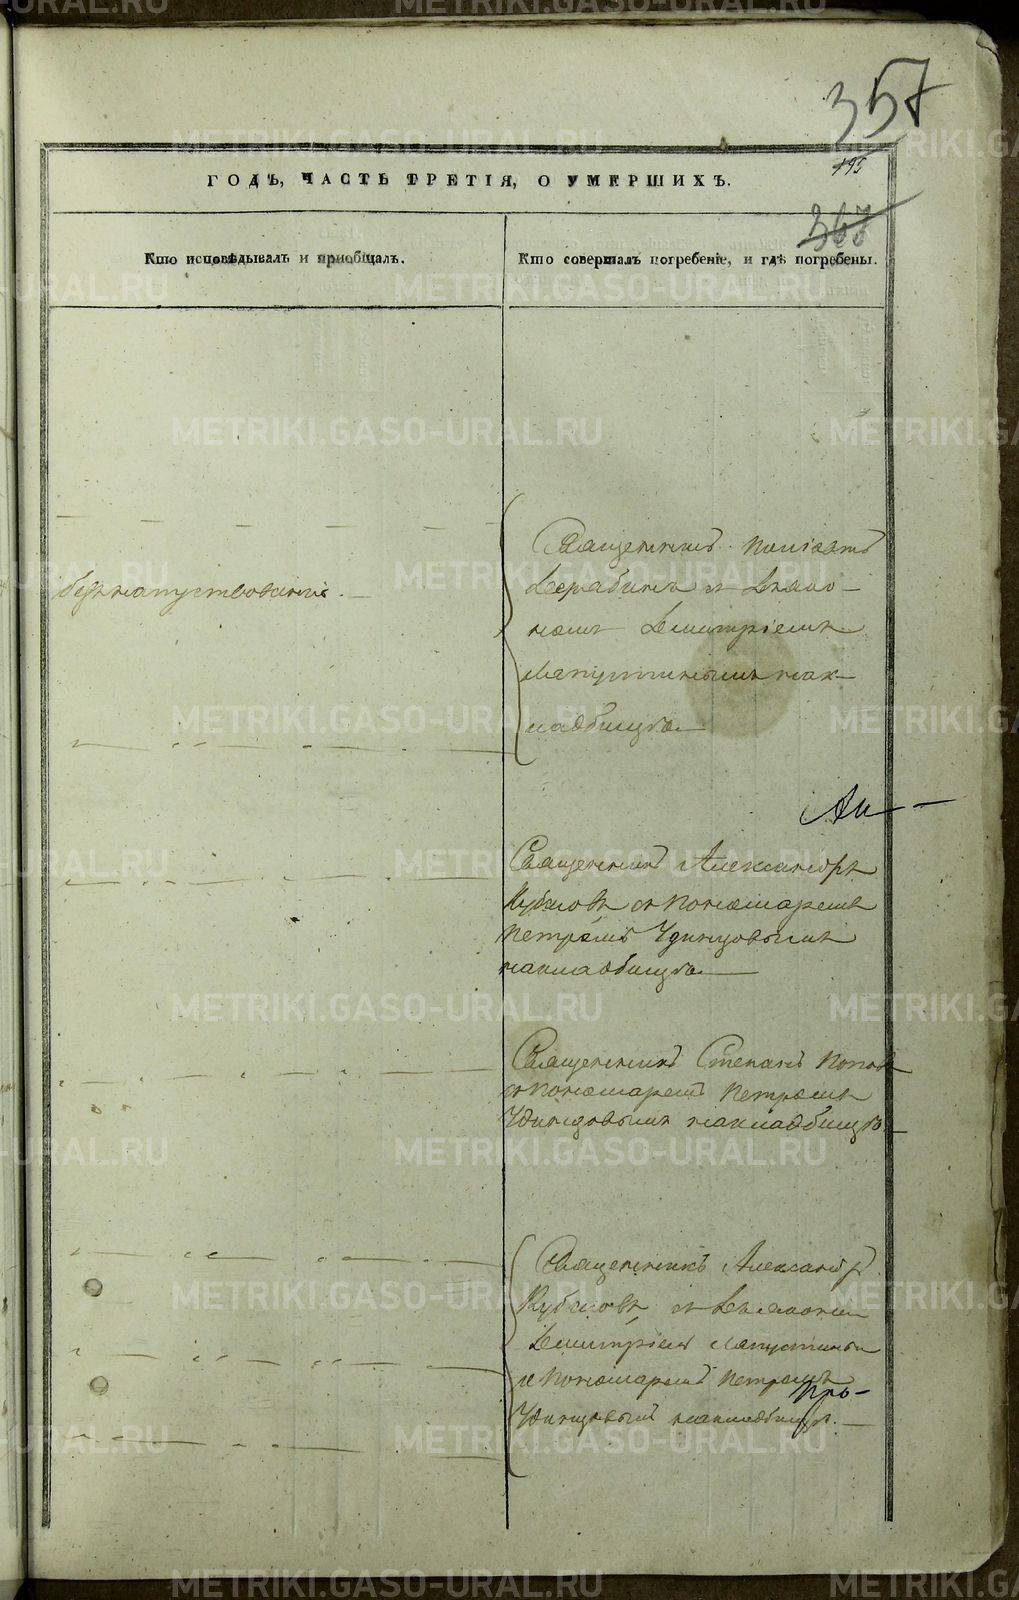 357
195
ГОДЪ, ЧАСТЬ ТРЕТІЯ, О УМЕРШИХЪ.
367
Кто исповѣдывалъ и пріобщалъ.
Кто совершалъ погребеніе, и гдѣ погребены.
Священникъ
безнапутствованія.
Дерябинъ съ Діако-
номъ Димитріемъ
Лепустинымъ нак-
ладбищѣ
Священникъ Александръ
Кубасовъ съ пономаремъ
Петромъ Удинцовымъ
накладбищѣ
Священникъ Стефанъ Попов
съ пономаремъ Петромъ
Удинцовымъ накладбищѣ
Священникъ Александр
Кубасовъ съ Діакономъ
Димитріемъ
и пономаремъ Петромъ
Удинцовымъ накладбищѣ.
METRIKI.GASO-URAL.RU